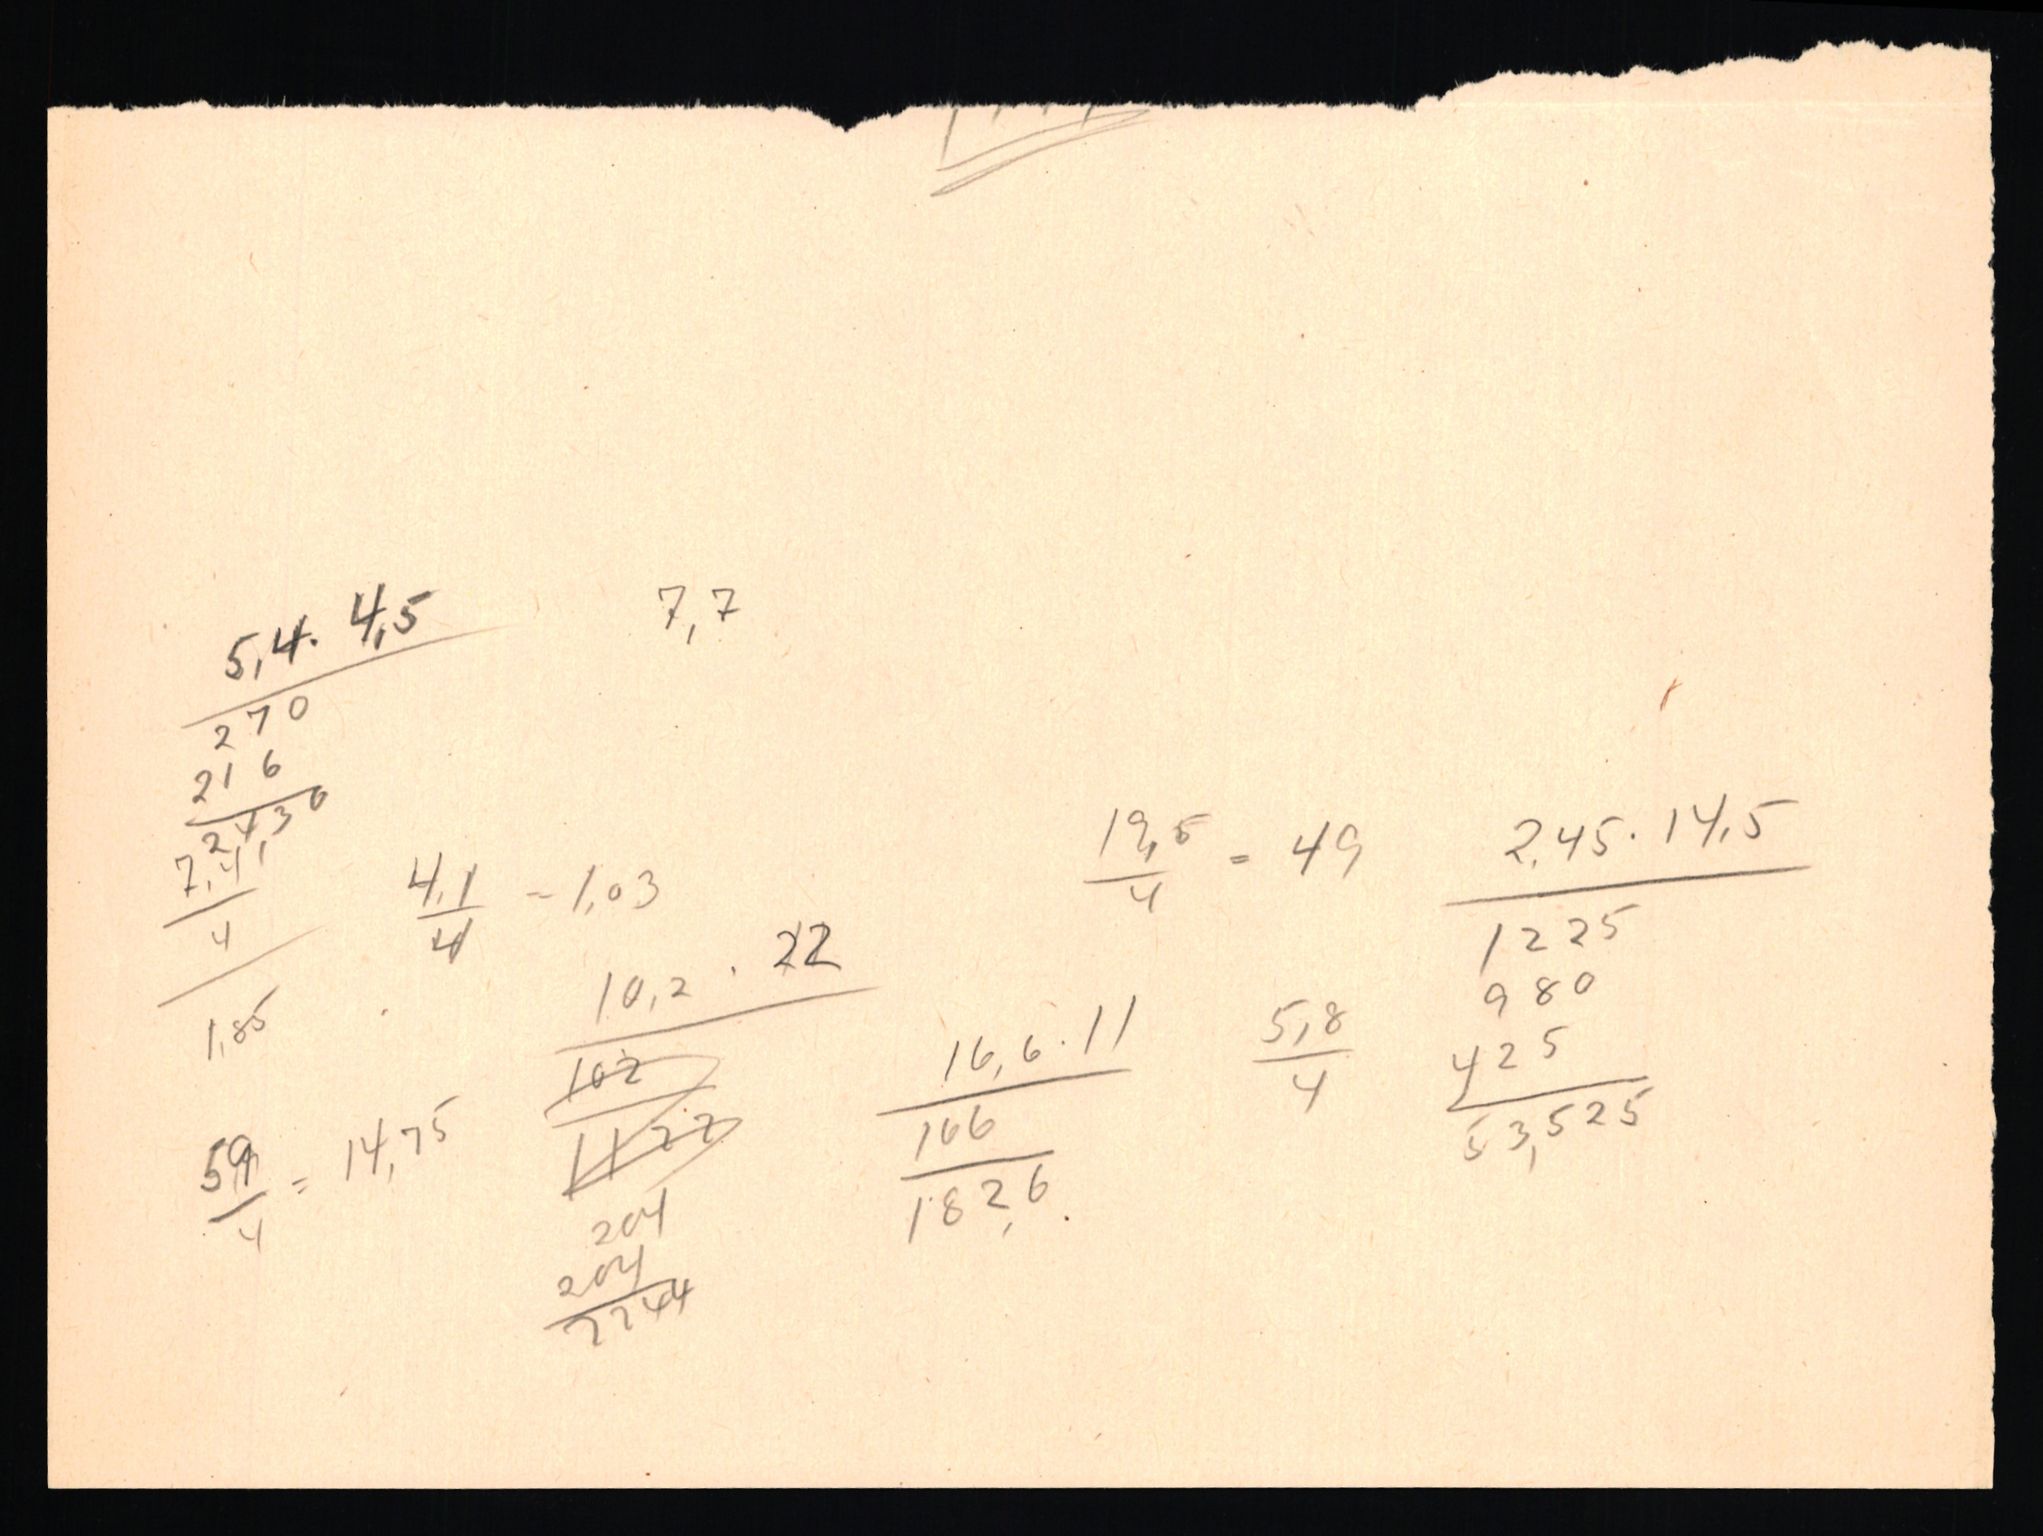 5,4 . 4,5
270
216
24,30
7,4
4
1,85
7,7
4,1
4
= 1,03
59
4
= 14,75
10,2 . 22
102
1122
204
204
2244
16,6 . 11
166
182,6
19,5
4
= 49
5,8
4
2,45 . 14,5
1225
980
425
53,525